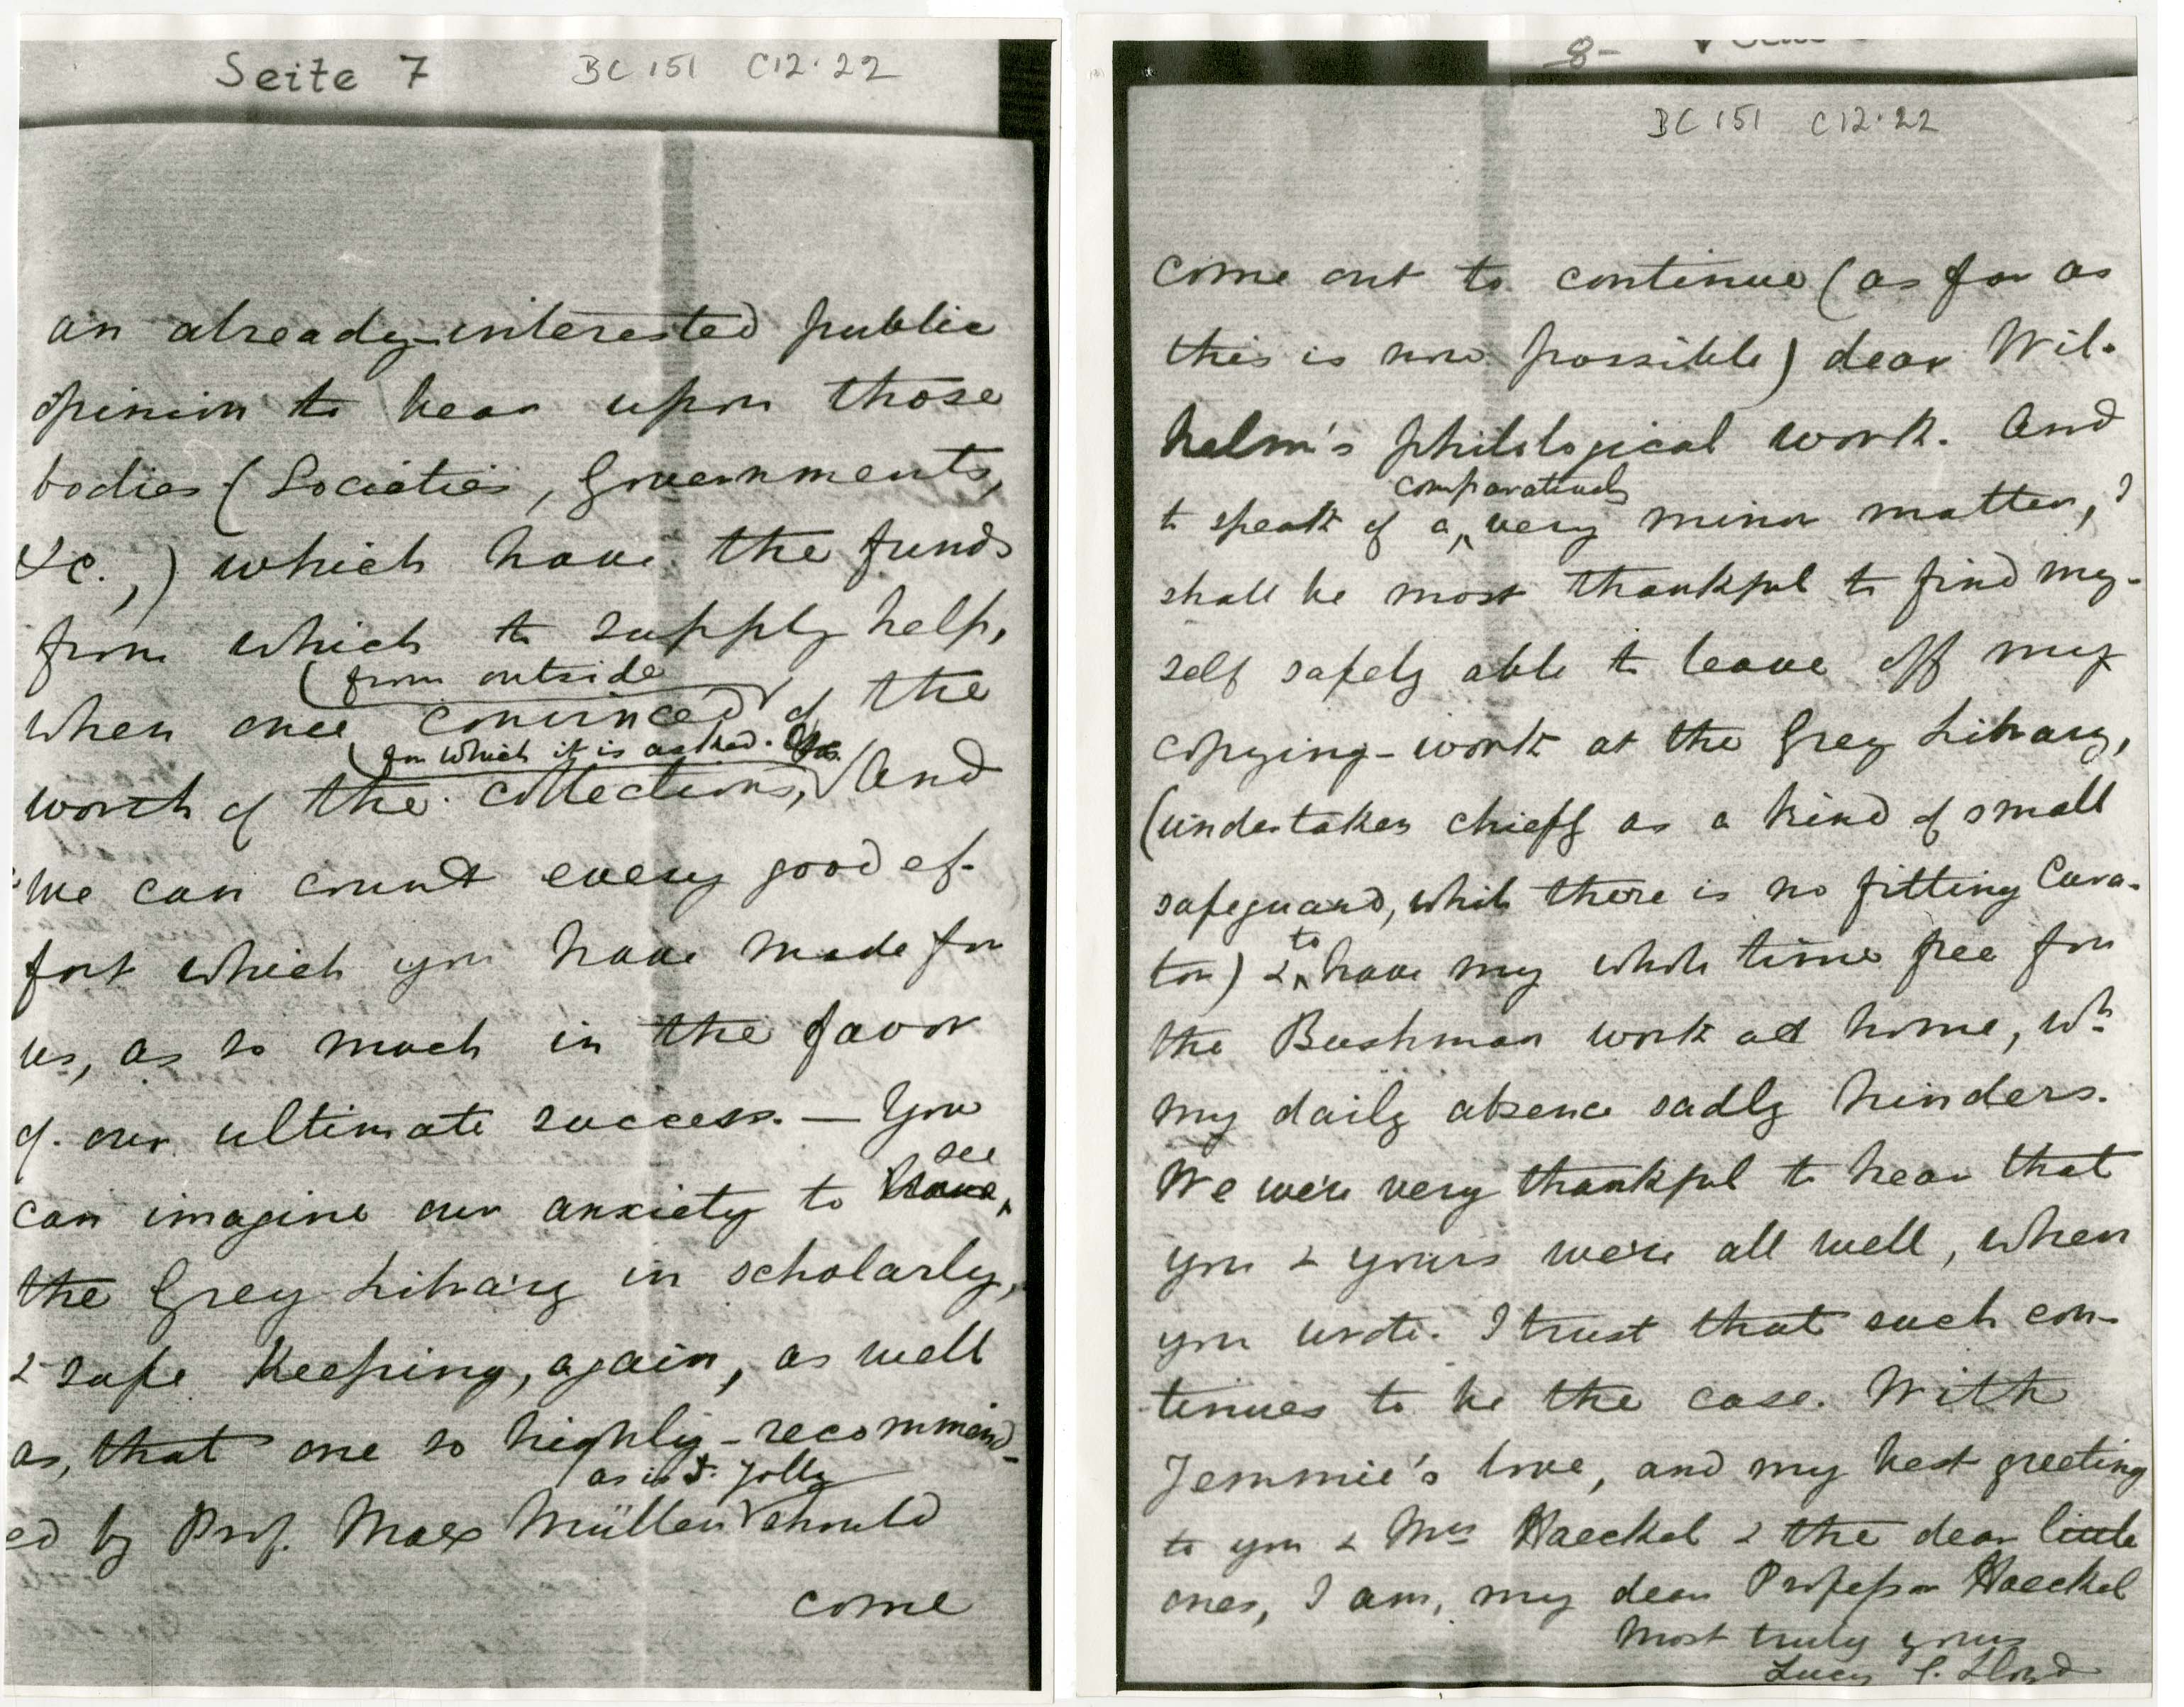 Seite 7 BC 151 C12.22
an already-interested public
opinion to bear upon those
bodies (Societies, Governments,
&c.,) which have the funds
from which to supply help,
(from outside
when once convinced of the
(for which it is asked.
worth of the collections, And
we can count every good ef-
fort which you have made for
us, as so much in the favor
of our ultimate success. — You
see
can imagine our anxiety to have
the Grey Library in scholarly,
& safe keeping, again, as well
as, that one so highly-recommend-
as is Dr. Jolly
ed by Prof. Max Müller should
come
8-
BC 151 C12.22
come out to continue (as far as
this is now possible) dear Wil-
helm's philological work. And
comparatively
to speak of a very minor matter, I
shall be most thankful to find my-
self safely able to leave off my
copying-work at the Grey Library,
(undertaken chiefly as a kind of small
safeguard, while there is no fitting Cura-
to
tor) & have my whole time free for
the Bushman work at home, wh.
my daily absence sadly hinders.
We were very thankful to hear that
you & yours were all well, when
you wrote. I trust that such con-
tinues to be the case. With
Jemmie's love, and my best greeting
to you & Mrs Haeckel & the dear little
ones, I am, my dear Professor Haeckel
Most truly yours
Lucy C. Lloyd